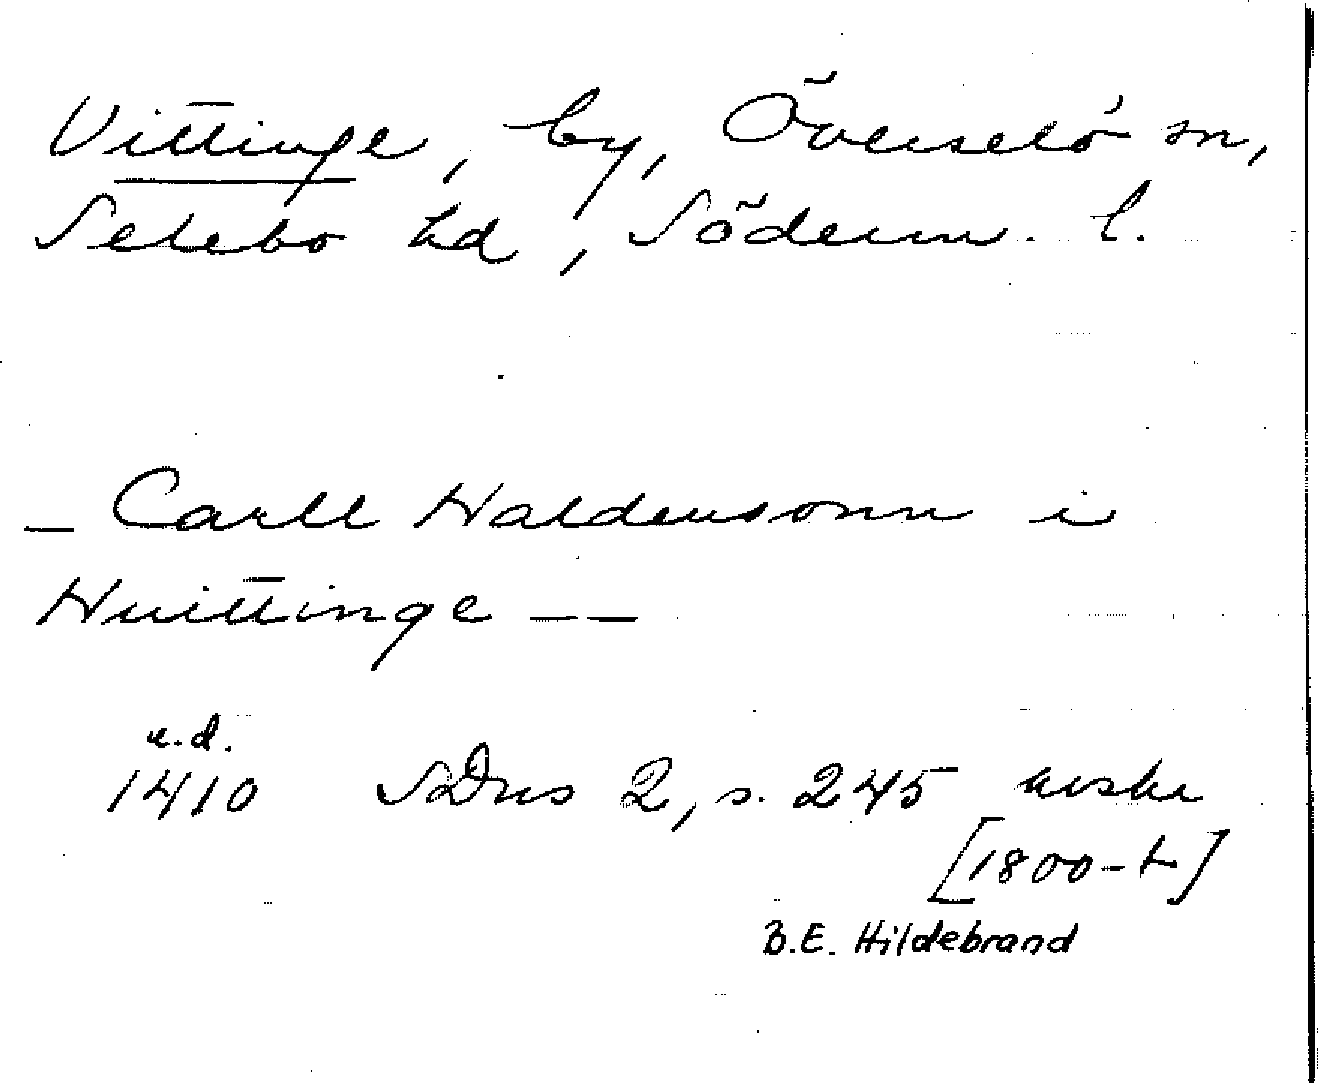 Vittinge, by, Överselö sn,
Selebo hd, Söderm. l.
– Carll Haldensonn i
Huittinge – –
u.d.
1410 SDns 2, s. 245 avskr
[1800-t]
B.E. Hildebrand